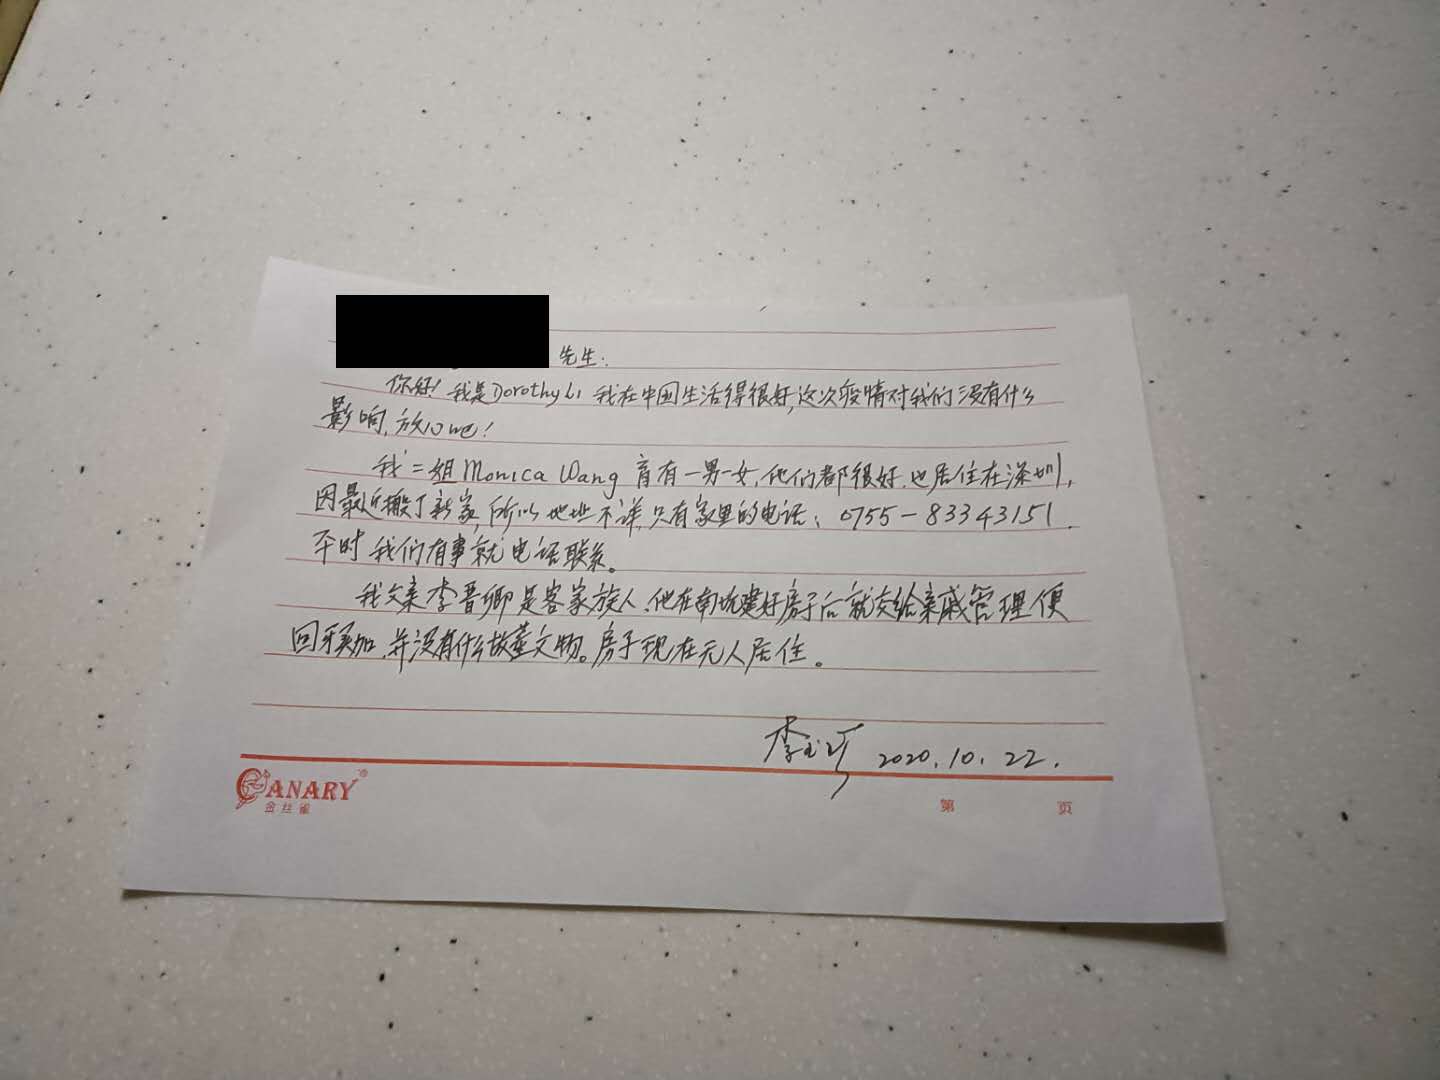 先生:
你好！我是Dorothy Li 我在中国生活得很好,这次疫情对我们没有什么
影响,放心吧！
我二姐Monica Wang 育有一男一女,他们都很好.也居住在深圳,
因最近搬了新家,所以地址不详,只有家里的电话: 0755-83343151.
平时我们有事就电话联系。
我父亲李晋卿是客家族人.他在南坑建好房子后就交给亲戚管理便
回牙买加,并没有什么故董文物。房子现在无人居住。
2020.10.22.
CANARY®
金丝雀
第 页